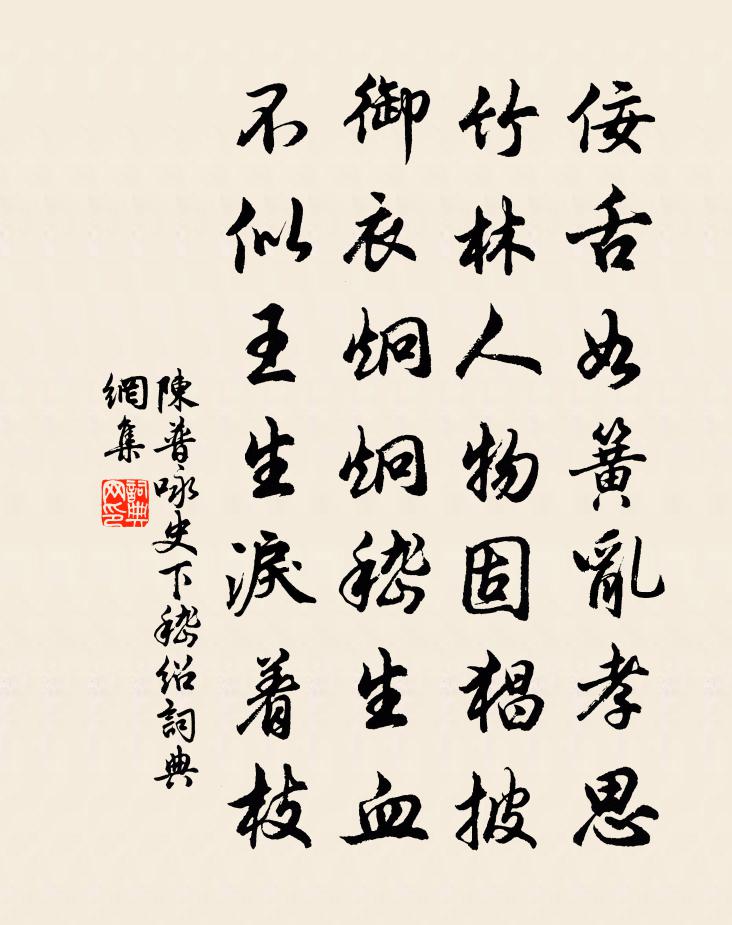 佞舌如簧亂孝思
竹林人物固猖披
御衣炯炯嵇生血
不似王生淚着枝
陳普咏史下嵇紹詞典
網集
詞典網印